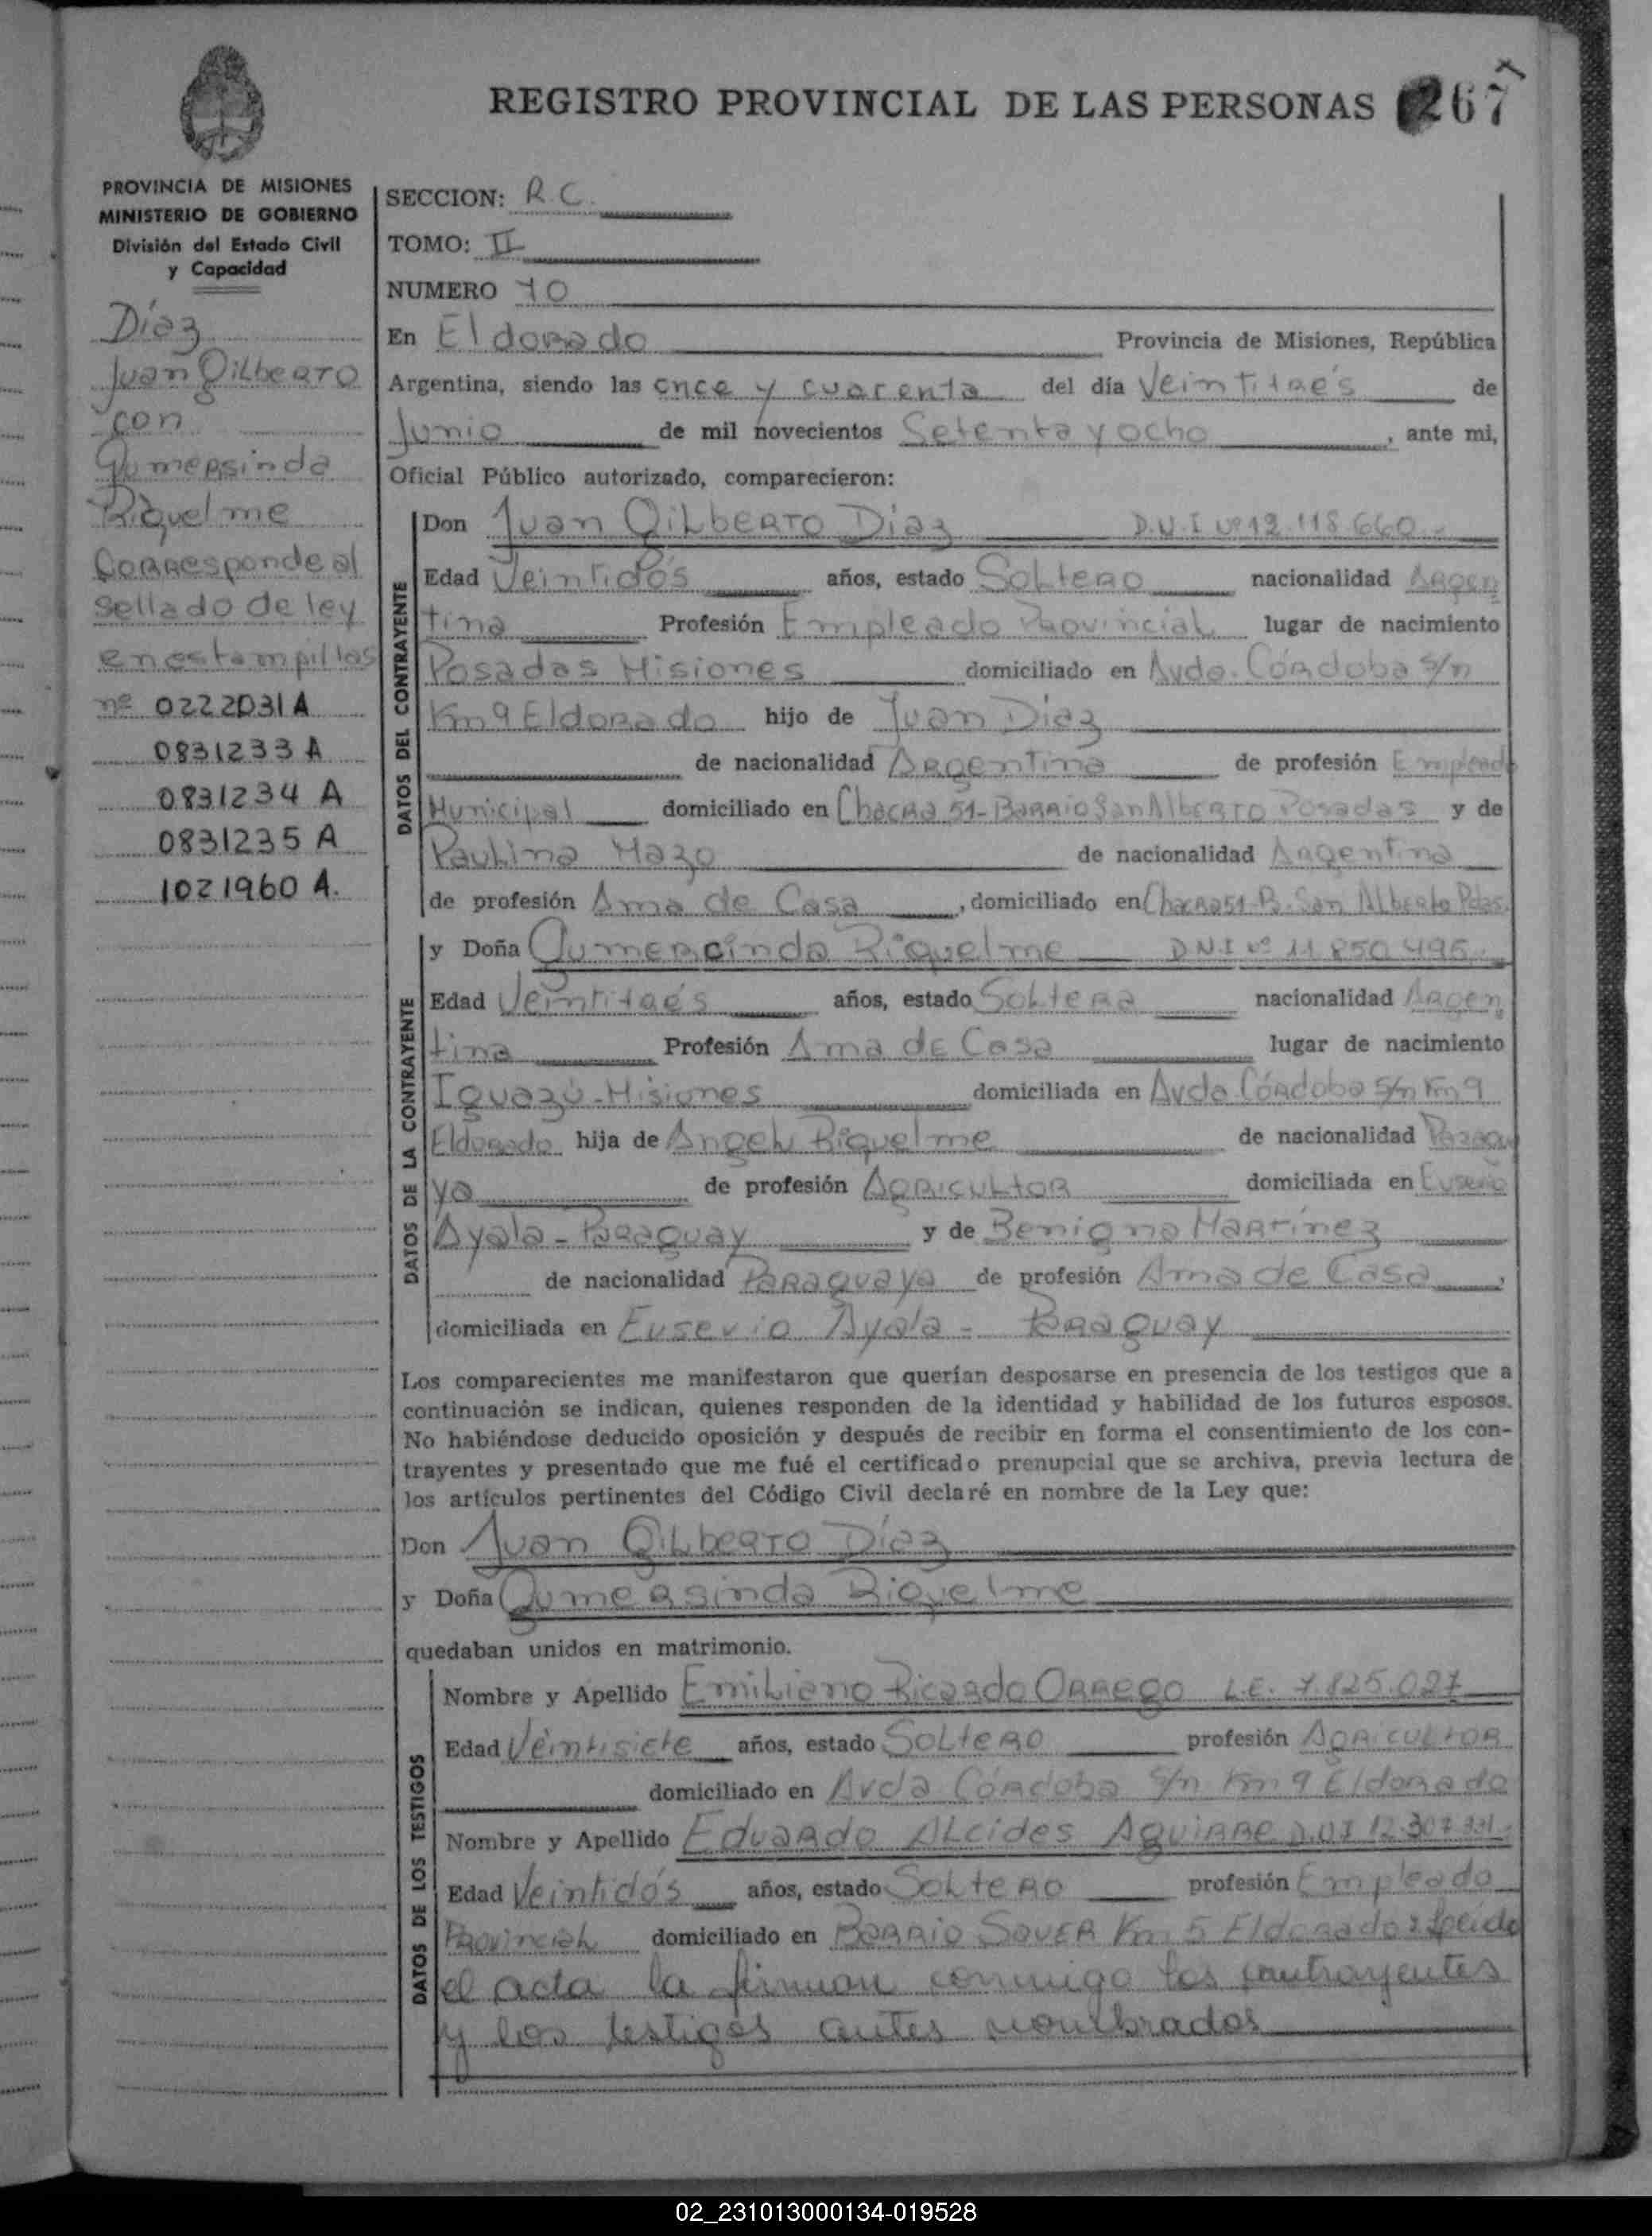 REGISTRO PROVINCIAL DE LAS PERSONAS 267
PROVINCIA DE MISIONES
MINISTERIO DE GOBIERNO
División del Estado Civil
y Capacidad
Díaz
Juan Gilberto
con
Gumersinda
Riquelme
Corresponde al
sellado de ley
en estampillas
nº 0222031A
0831233 A
0831234 A
0831235 A
1021960 A.
SECCION: R.C.
TOMO: II
NUMERO 10
En Eldorado Provincia de Misiones, República
Argentina, siendo las once y cuarenta del día Veintitrés de
Junio de mil novecientos Setenta y ocho, ante mi,
Oficial Público autorizado, comparecieron:
DATOS DEL CONTRAYENTE
Don Juan Gilberto Díaz D.N.I Nº 12.118.660.-
Edad Veintidós años, estado Soltero nacionalidad Argen
tina Profesión Empleado Provincial lugar de nacimiento
Posadas Misiones domiciliado en Avda. Córdoba s/n
Km 9 Eldorado hijo de Juan Díaz
de nacionalidad Argentina de profesión Empleado
Municipal domiciliado en Chacra 51-Barrio San Alberto Posadas y de
Paulina Mazo de nacionalidad Argentina
de profesión Ama de Casa, domiciliado en Chacra 51-B. San Alberto Pdas.
DATOS DE LA CONTRAYENTE
y Doña Gumersinda Riquelme D.N.I Nº 11.850.495.-
Edad Veintitrés años, estado Soltera nacionalidad Argen
tina Profesión Ama de Casa lugar de nacimiento
Iguazú-Misiones domiciliada en Avda Córdoba S/n Km 9
Eldorado hija de Angel Riquelme de nacionalidad Paragua
ya de profesión Agricultor domiciliada en Eusevio
Ayala - Paraguay y de Benigna Martínez
de nacionalidad Paraguaya de profesión Ama de Casa,
domiciliada en Eusevio Ayala - Paraguay
Los comparecientes me manifestaron que querían desposarse en presencia de los testigos que a
continuación se indican, quienes responden de la identidad y habilidad de los futuros esposos.
No habiéndose deducido oposición y después de recibir en forma el consentimiento de los con-
trayentes y presentado que me fué el certificado prenupcial que se archiva, previa lectura de
los artículos pertinentes del Código Civil declaré en nombre de la Ley que:
Don Juan Gilberto Díaz
y Doña Gumersinda Riquelme
quedaban unidos en matrimonio.
DATOS DE LOS TESTIGOS
Nombre y Apellido Emiliano Ricardo Orrego L.E. 7.825.027
Edad Veintisiete años, estado Soltero profesión Agricultor
domiciliado en Avda Córdoba S/n Km 9 Eldorado
Nombre y Apellido Eduardo Alcides Aguirre D.N.I 12.307.
Edad Veintidós años, estado Soltero profesión Empleado
Provincial domiciliado en Barrio Km 5 Eldorado: Leída
el acta la firman conmigo los contrayentes
y los testigos antes nombrados
02_231013000134-019528